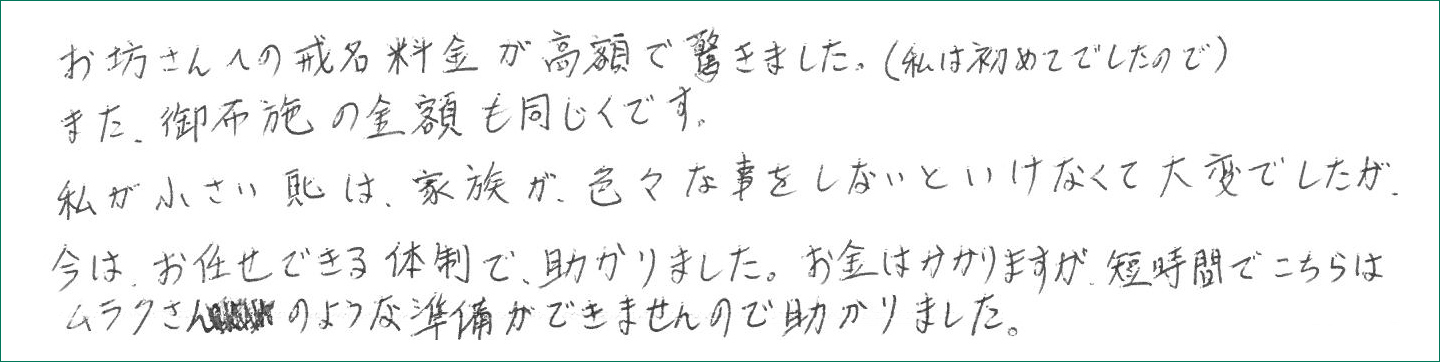 お坊さんへの戒名料金が高額で驚きました。(私は初めてでしたので)
また、御布施の金額も同じくです。
私が小さい頃は、家族が、色々な事をしないといけなくて大変でしたが、
今は、お任せできる体制で、助かりました。お金はかかりますが、短時間でこちらは
ムラクさんのような準備ができませんので助かりました。